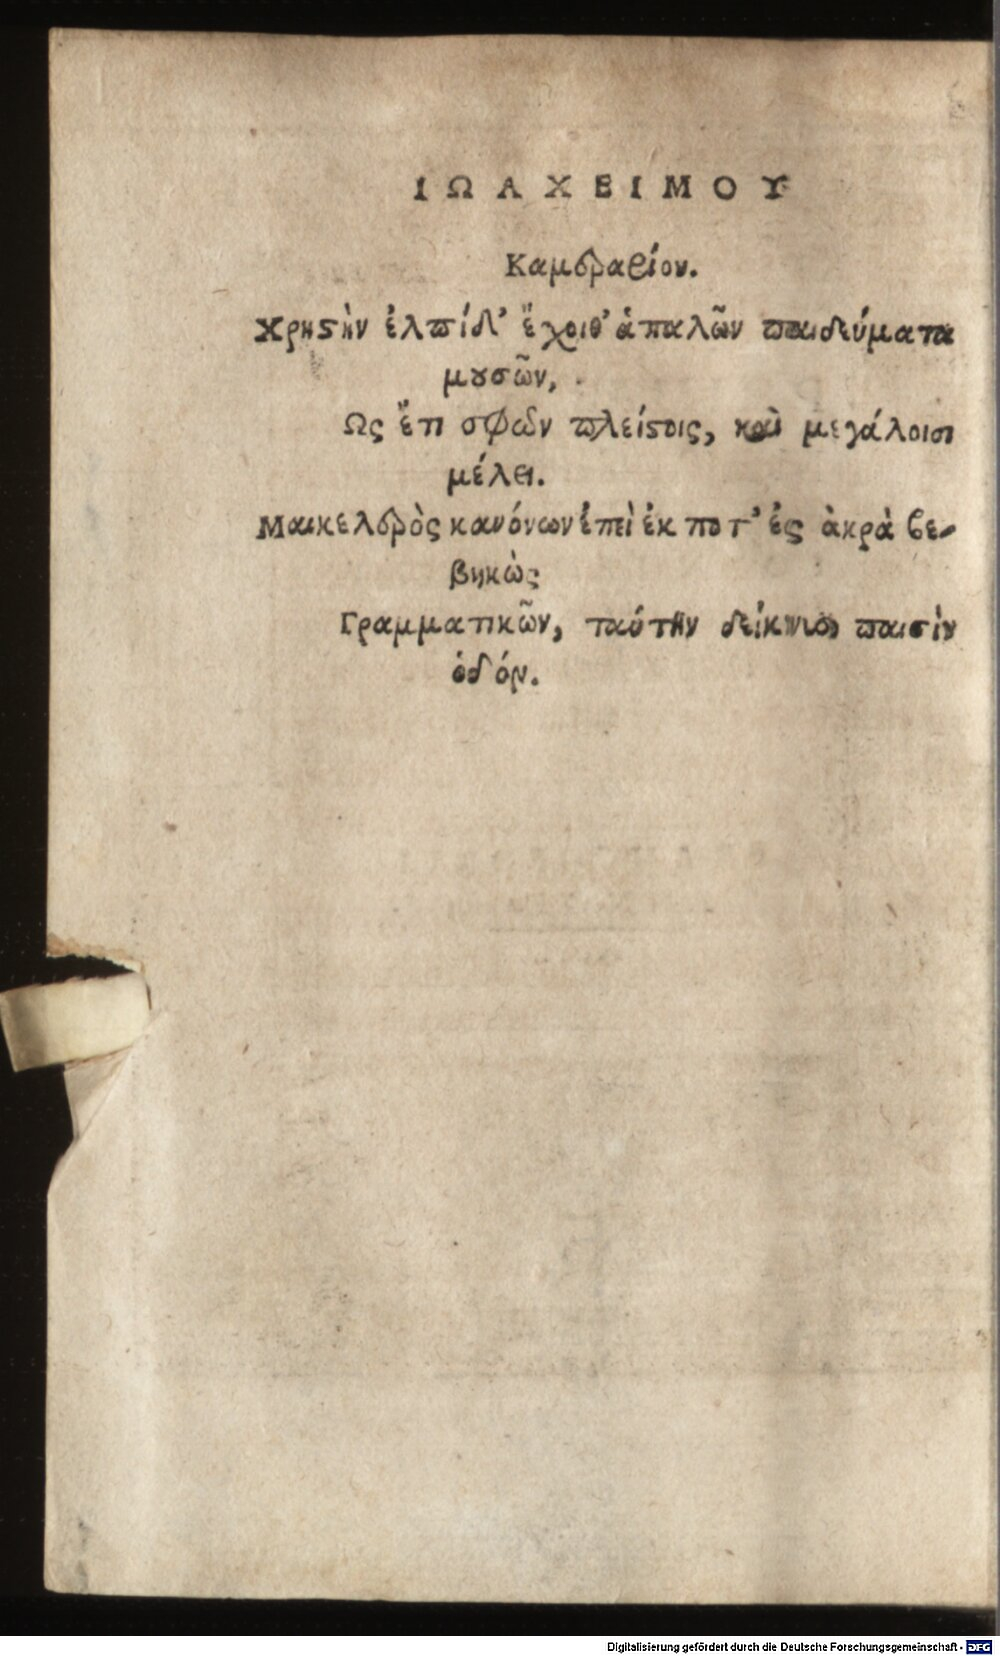 ΙΩΑΧΕΙΜΟΥ
Καμεραρίου.
Χρηστὴν ἐλπίδ' ἔχοιθ' ἁπαλῶν παιδεύματα
μουσῶν,
Ως ἔτι σφῶν πλείστοις, καὶ μεγάλοισι
μέλει.
κανόνων ἐπεὶ ἐκ ποτ' ἐς ἀκρὰ βε-
βηκὼς
Γραμματικῶν, ταύτην δείκνυσι παισὶν
ὁδόν.
Digitalisierung gefördert durch die Deutsche Forschungsgemeinschaft - DFG